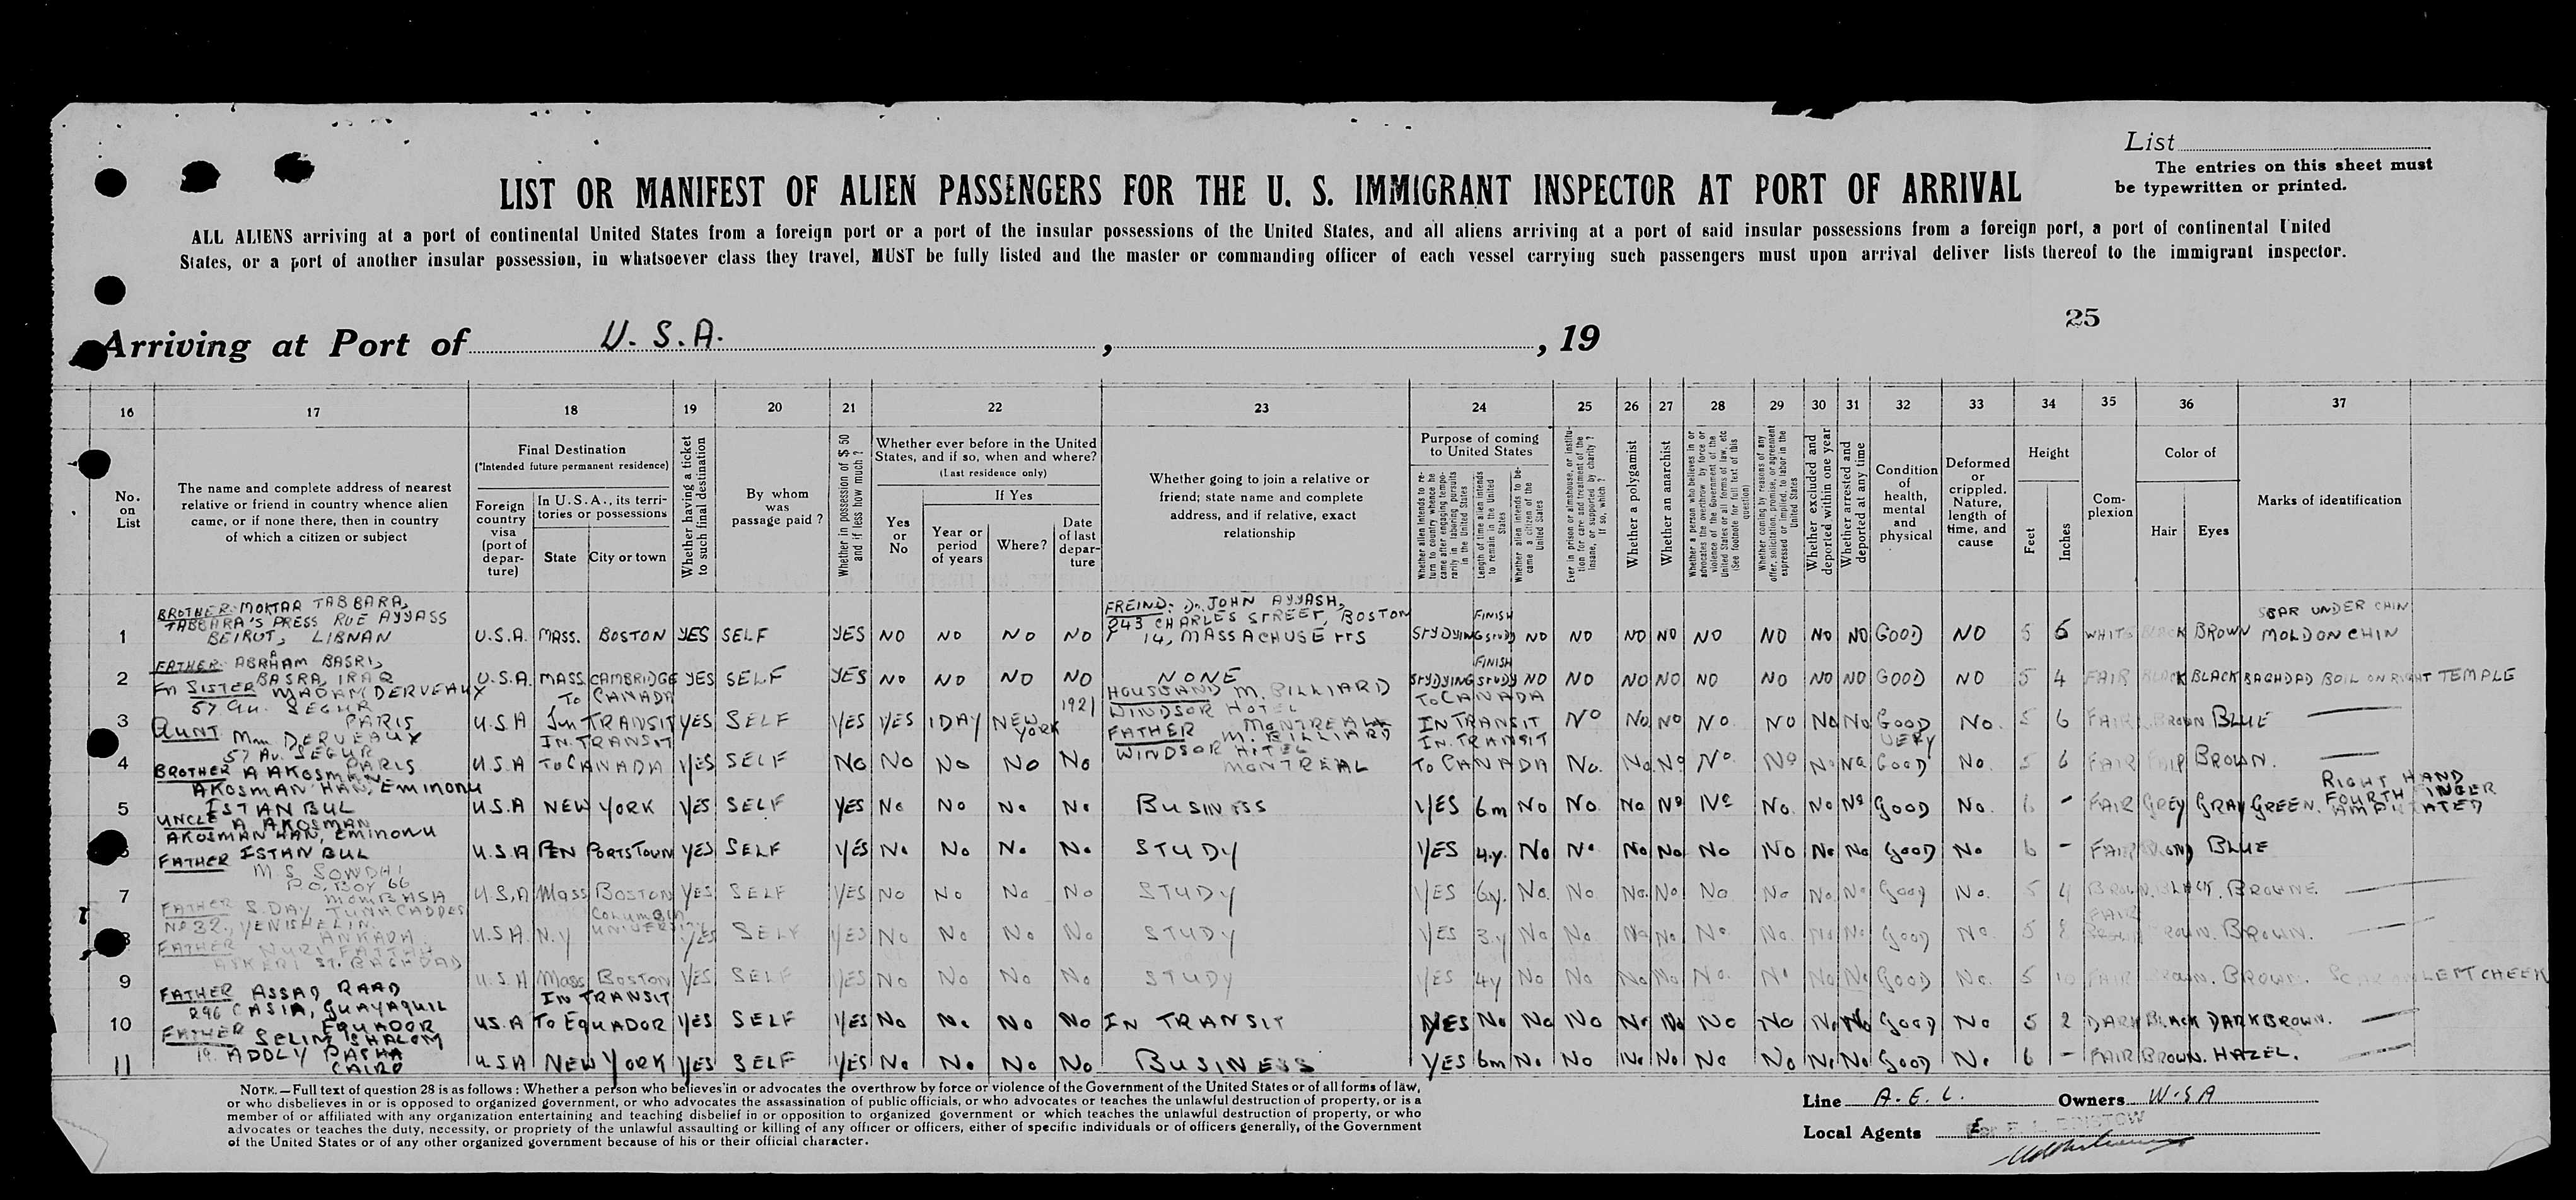 List
The entries on this sheet must
be typewritten or printed.
LIST OR MANIFEST OF ALIEN PASSENGERS FOR THE U. S. IMMIGRANT INSPECTOR AT PORT OF ARRIVAL
ALL ALIENS arriving at a port of continental United States from a foreign port or a port of the insular possessions of the United States, and all aliens arriving at a port of said insular possessions from a foreign port, a port of continental United
States, or a port of another insular possession, in whatsoever class they travel, MUST be fully listed and the master or commanding officer of each vessel carrying such passengers must upon arrival deliver lists thereof to the immigrant inspector.
25
Arriving at Port of U. S. A. , , 19
16 17 18 19 20 21 22 23 24 25 26 27 28 29 30 31 32 33 34 35 36 37
No. on List
The name and complete address of nearest
relative or friend in country whence alien
came, or if none there, then in country
of which a citizen or subject
Final Destination
(*Intended future permanent residence)
Foreign country visa (port of depar-ture)
In U.S.A., its terri-
tories or possessions
State
City or town
Whether having a ticket
to such final destination
By whom
was
passage paid ?
Whether in possession of $ 50
and if less how much ?
Whether ever before in the United
States, and if so, when and where?
(Last residence only)
Yes or No
If Yes
Year or period of years
Where?
Date of last depar-ture
Whether going to join a relative or
friend; state name and complete
address, and if relative, exact
relationship
Purpose of coming
to United States
Whether alien intends to re-
turn to country whence he
came after engaging tempo-
rarily in laboring pursuits
in the United States
Length of time alien intends
to remain in the United
States
Whether alien intends to be-
come a citizen of the
United States
Ever in prison or almshouse, or institu-
tion for care and treatment of the
insane, or supported by charity ?
If so, which ?
Whether a polygamist
Whether an anarchist
Whether a person who believes in or
advocates the overthrow by force or
violence of the Government of the
United States or all forms of law, etc
(See footnote for full text of this
question)
Whether coming by reasons of any
offer, solicitation, promise, or agreement
expressed or implied, to labor in the
United States
Whether excluded and
deported within one year
Whether arrested and
deported at any time
Condition of health, mental and physical
Deformed or crippled. Nature, length of time, and cause
Height
Feet
Inches
Com-plexion
Color of
Hair
Eyes
Marks of identification
BROTHER: MOKTAR TABBARA,
TABBARA'S PRESS RUE AYYASS
BEIRUT, LIBNAN
1 U.S.A. MASS. BOSTON YES SELF YES NO NO NO NO
FREIND: Dr. JOHN AYYASH,
243 CHARLES STREET, BOSTON
14, MASSACHUSETTS
STYDYING FINISH STUDY NO NO NO NO NO NO NO NO GOOD NO 5 6 WHITE BLACK BROWN
SCAR UNDER CHIN
MOLD ON CHIN
FATHER: ABRAHAM BASRI,
BASRA, IRAQ
2 U.S.A. MASS. CAMBRIDGE YES SELF YES NO NO NO NO NONE STYDYING FINISH STUDY NO NO NO NO NO NO NO NO GOOD NO 5 4 FAIR BLACK BLACK BAGHDAD BOIL ON RIGHT TEMPLE
SISTER MADAM DERVEAUX
57 Av. SEGUR
PARIS
3 U.S.A TO CANADA In TRANSIT YES SELF YES YES 1 DAY NEW YORK 1921
HOUSBAND M. BILLIARD
WINDSOR HOTEL
MONTREAL
TO CANADA IN TRANSIT NO No No No No No No Good No. 5 6 FAIR BROWN BLUE
AUNT Mm DERVEAUX
57 Av. SEGUR
PARIS
4 U.S.A IN. TRANSIT TO CANADA YES SELF NO No No No No
FATHER M. BILLIARD
WINDSOR HOTEL
MONTREAL
IN. TRANSIT TO CANADA No. No No No No No No VERY Good No. 5 6 FAIR FAIR BROWN.
BROTHER A AKOSMAN
AKOSMAN HAN, Eminonu
ISTANBUL
5 U.S.A NEW YORK YES SELF YES No No No No BUSINESS YES 6m No No. No No No No. No No Good No. 6 - FAIR GREY GRAY GREEN.
RIGHT HAND
FOURTH FINGER
AMPUTATED
UNCLE A AKOSMAN
AKOSMAN HAN, Eminonu
ISTANBUL
U.S.A PEN PORTSTOWN YES SELF YES No No No No STUDY YES 4.y. No No No No No No No No Good No 6 - FAIR BLOND BLUE
FATHER
M S SOWDHI
P.O. BOY 66
MOMBASA
7 U.S.A Mass BOSTON YES SELF YES No No No No STUDY YES 6.y. No. No No. No No No No No Good No. 5 4 BROWN. BLACK. BROWNE.
FATHER S. DAY TUNA CADDES
No 32., YENISHELIN.
ANKARA
8 U.S.A. N.Y COLUMBIA UNIVERSITY YES SELF YES No No No No STUDY YES 3.y No No. No No No. No. No No Good No. 5 8 FAIR BROWN. BROWN.
FATHER NURI FATTAH
ASKERI ST. BAGHDAD
9 U.S.A Mass BOSTON YES SELF YES No No No No STUDY YES 4y No No No No No. No No No Good No. 5 10 FAIR BROWN. BROWN. SCAR ON LEFT CHEEK
FATHER ASSAD RAAD
296 CASIA, GUAYAQUIL
EQUADOR
10 U.S.A IN TRANSIT TO EQUADOR YES SELF YES No No. No No IN TRANSIT YES No No No No No No No No No Good No 5 2 DARK BLACK DARK BROWN.
FATHER SELIM SHALOM
19. ADDLY PASHA
CAIRO
11 U.S.A NEW YORK YES SELF YES No No. No No BUSINESS YES 6m No. No No No No No No No Good No 6 - FAIR BROWN. HAZEL.
NOTE.—Full text of question 28 is as follows : Whether a person who believes in or advocates the overthrow by force or violence of the Government of the United States or of all forms of law,
or who disbelieves in or is opposed to organized government, or who advocates the assassination of public officials, or who advocates or teaches the unlawful destruction of property, or is a
member of or affiliated with any organization entertaining and teaching disbelief in or opposition to organized government or which teaches the unlawful destruction of property, or who
advocates or teaches the duty, necessity, or propriety of the unlawful assaulting or killing of any officer or officers, either of specific individuals or of officers generally, of the Government
of the United States or of any other organized government because of his or their official character.
Line A. E. L. Owners W.S A
Local Agents For F. L. BRISTOW